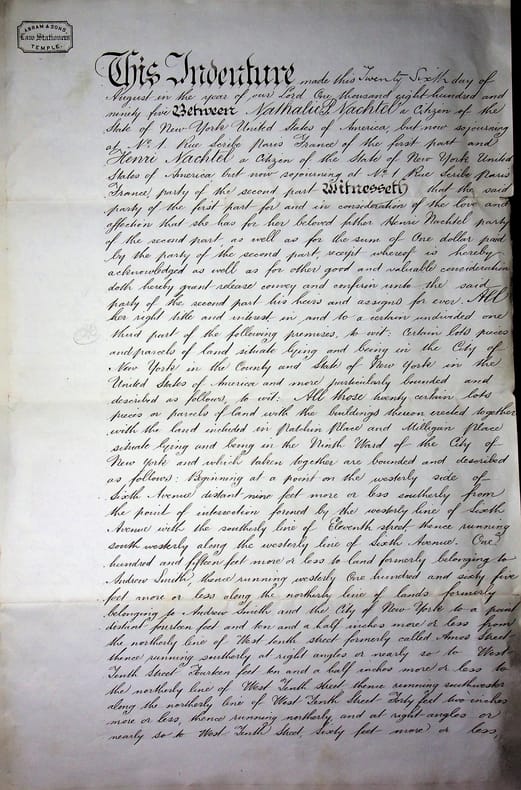 ABRAM & SONS,
Law Stationers
TEMPLE.
This Indenture made this Twenty Sixth day of
August in the year of our Lord One thousand eight hundred and
ninety five Between Nathalie P. Nachtel a Citizen of the
State of New York United States of America, but now sojourning
at No. 1 Rue Scribe Paris France of the first part and
Henri Nachtel a Citizen of the State of New York United
States of America but now sojourning at No. 1 Rue Scribe Paris
France, party of the second part Witnesseth that the said
party of the first part for and in consideration of the love and
affection that she has for her beloved father Henri Nachtel party
of the second part, as well as for the sum of One dollar paid
by the party of the second part, receipt whereof is hereby
acknowledged as well as for other good and valuable consideration
doth hereby grant release convey and confirm unto the said
party of the second part his heirs and assigns for ever. All
her right title and interest in and to a certain undivided one
third part of the following premises, to wit: Certain lots pieces
and parcels of land situate lying and being in the City of
New York in the County and State of New York in the
United States of America and more particularly bounded and
described as follows, to wit: All those twenty certain lots
pieces or parcels of land with the buildings thereon erected together
with the land included in Patchin Place and Milligan Place
situate lying and being in the Ninth Ward of the City of
New York and which taken together are bounded and described
as follows: Beginning at a point on the westerly side of
Sixth Avenue distant nine feet more or less southerly from
the point of intersection formed by the westerly line of Sixth
Avenue with the southerly line of Eleventh street thence running
south westerly along the westerly line of Sixth Avenue. One
hundred and fifteen feet more or less to land formerly belonging to
Andrew Smith, thence running westerly One hundred and sixty five
feet more or less along the northerly line of lands formerly
belonging to Andrew Smith and the City of New York to a point
distant fourteen feet and ten and a half inches more or less from
the northerly line of West tenth street formerly called Amos Street
thence running southerly at right angles or nearly so to West
Tenth Street Fourteen feet ten and a half inches more or less to
the northerly line of West Tenth Street thence running southwester
along the northerly line of West Tenth Street Forty feet two inches
more or less, thence running northerly and at right angles or
nearly so to West Tenth Street, Sixty feet more or less,